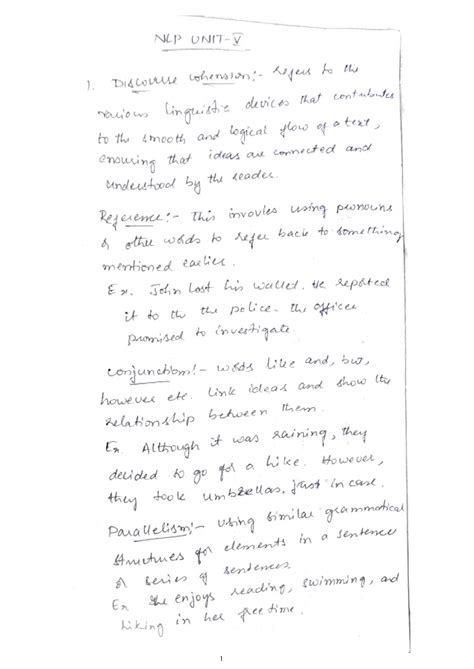 NLP UNIT-V
1. Discourse cohension:- refers to the
various linguistic devices that contributes
to the smooth and logical flow of a text,
ensuring that ideas are connected and
understood by the reader.
Reference:- This invovles using pronouns
& other words to refer back to something
mentioned earlier.
Ex. John lost his wallet. He reported
it to the the police. the officer
promised to investigate.
conjunction:- words like and, but,
however etc. link ideas and show the
relationship between them.
Ex. Although it was raining, they
decided to go for a hike. However,
they took umbrellas, just in case.
Parallelism:- using similar grammatical
structures for elements in a sentence
or series of sentences.
Ex She enjoys reading, swimming, and
hiking in her free time.
1